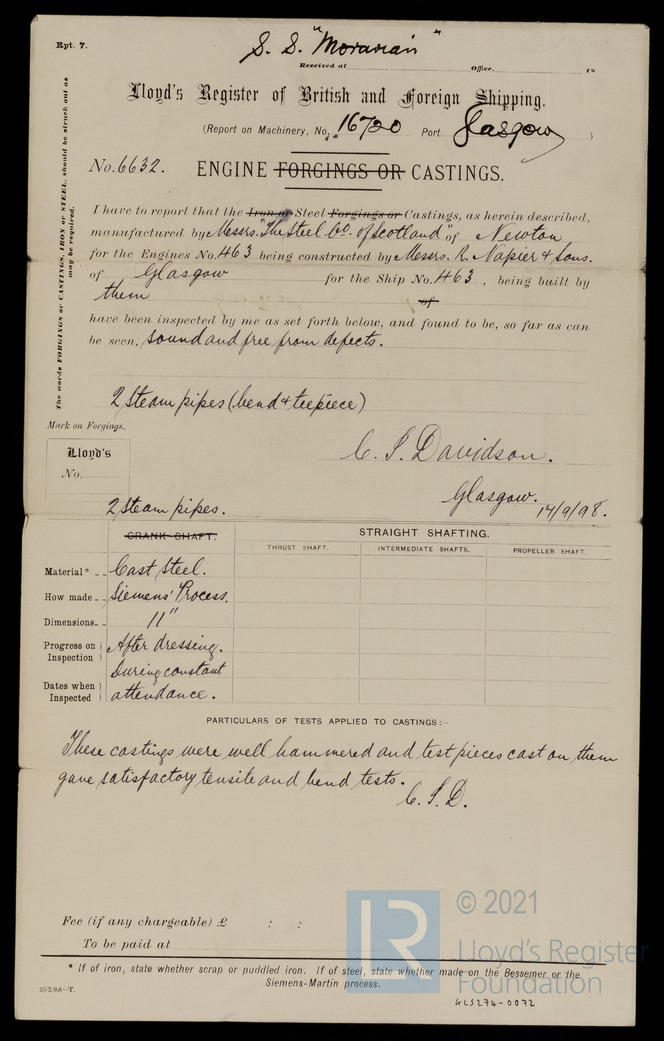 Rpt. 7.
S. S. "Moravian"
Received at Office. 18
Lloyd's Register of British and Foreign Shipping.
(Report on Machinery, No. 16720 Port Glasgow)
No. 6632. ENGINE FORGINGS OR CASTINGS.
The words FORGINGS or CASTINGS, IRON or STEEL, should be struck out as may be required.
I have to report that the Iron or Steel Forgings or Castings, as herein described,
manufactured by Messrs. "The Steel Co. of Scotland" of Newton
for the Engines No. 463 being constructed by Messrs. R. Napier & Sons.
of Glasgow for the Ship No. 463, being built by
them of
have been inspected by me as set forth below, and found to be, so far as can
be seen, sound and free from defects.
2 Steam pipes (bend & teepiece)
Mark on Forgings.
Lloyd's
No.
C. I. Davidson.
Glasgow. 14/9/98.
2 Steam pipes.
CRANK SHAFT. STRAIGHT SHAFTING.
THRUST SHAFT. INTERMEDIATE SHAFTS. PROPELLER SHAFT.
Material* Cast Steel.
How made Siemens' Process.
Dimensions 11"
Progress on Inspection After dressing.
Dates when Inspected During constant
attendance.
PARTICULARS OF TESTS APPLIED TO CASTINGS:—
These castings were well hammered and test pieces cast on them
gave satisfactory tensile and bend tests.
C. I. D.
Fee (if any chargeable) £ : :
To be paid at
* If of iron, state whether scrap or puddled iron. If of steel, state whether made on the Bessemer or the
Siemens-Martin process.
25/3/96—T.
LR
© 2021
Lloyd's Register
Foundation
GLS274-0072